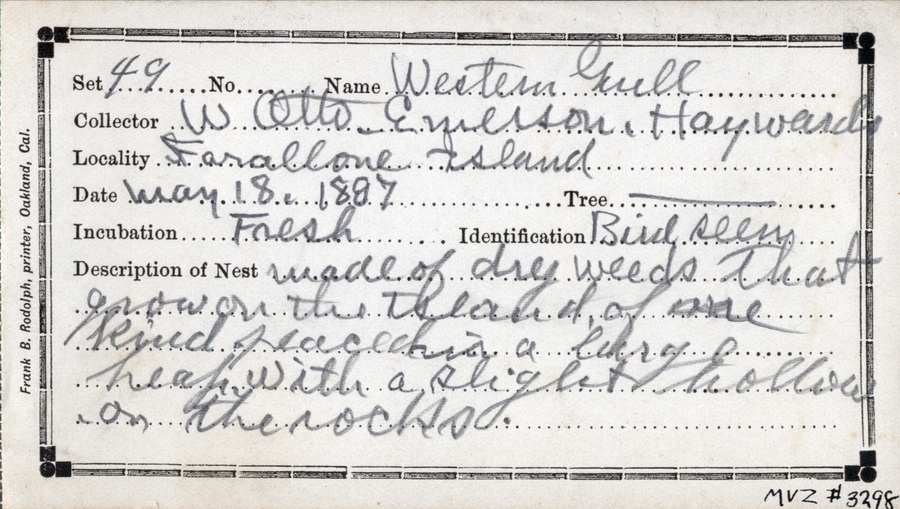 Set 49 No. Name Western Gull
Collector W Otto Emerson. Haywards
Locality Farallone Island
Date May 18. 1887 Tree
Incubation Fresh Identification Bird seen
Description of Nest made of dry weeds that
grow on the Island, of one
kind placed in a large
heap, with a slight hollow
on the rocks.
Frank B. Rodolph, printer, Oakland, Cal.
MVZ # 3298